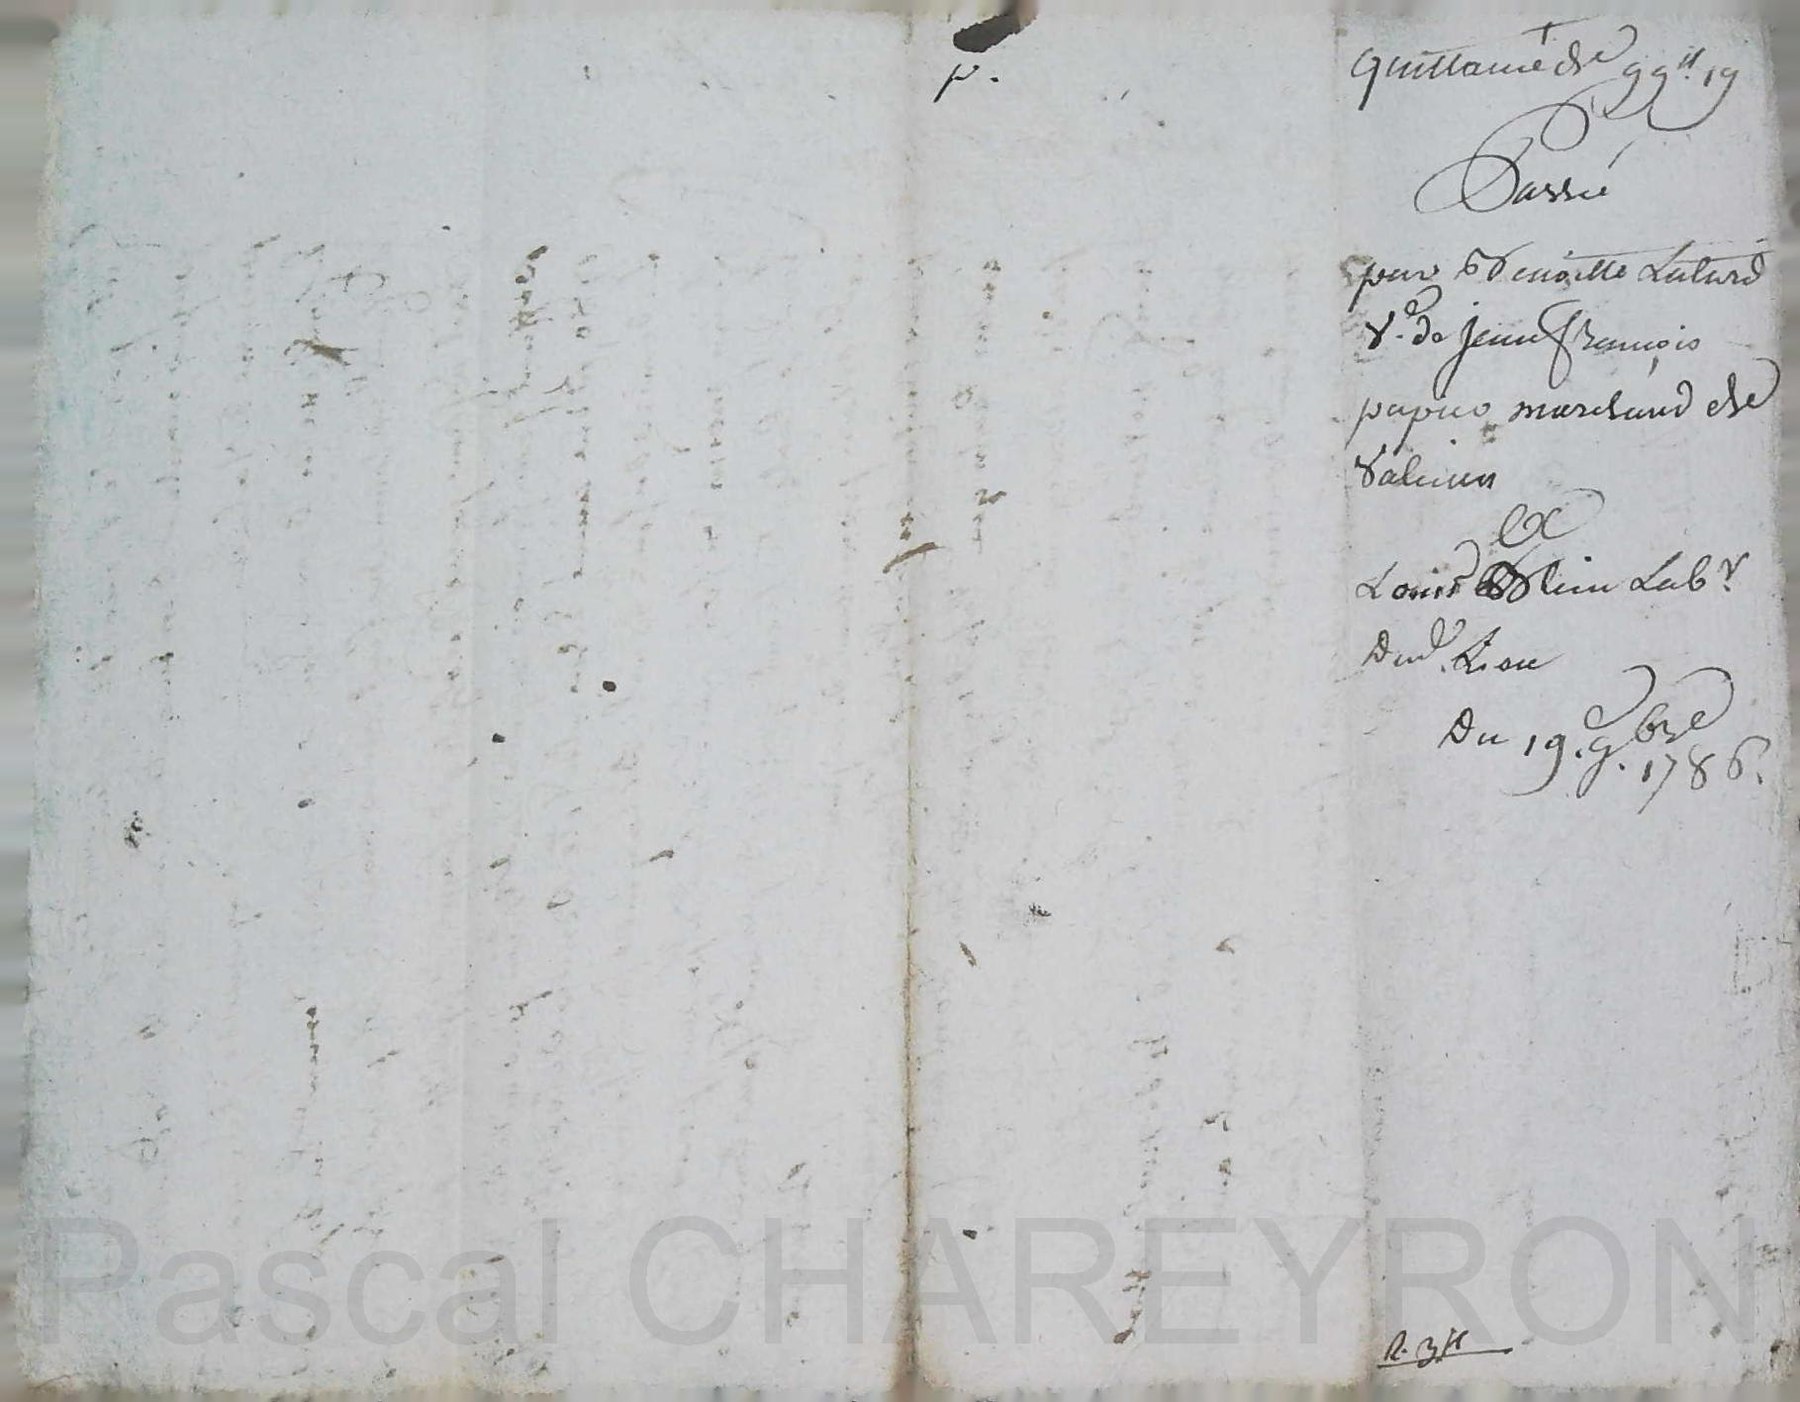 p.
quittance de 99lt 19
Passée
par Benoitte Lutard
Ve. de Jean François
papier marchand de
Valence
et
Louis Labr.
Dud. Lieu
Du 19. 9bre
1786.
R. 3lt
Pascal CHAREYRON